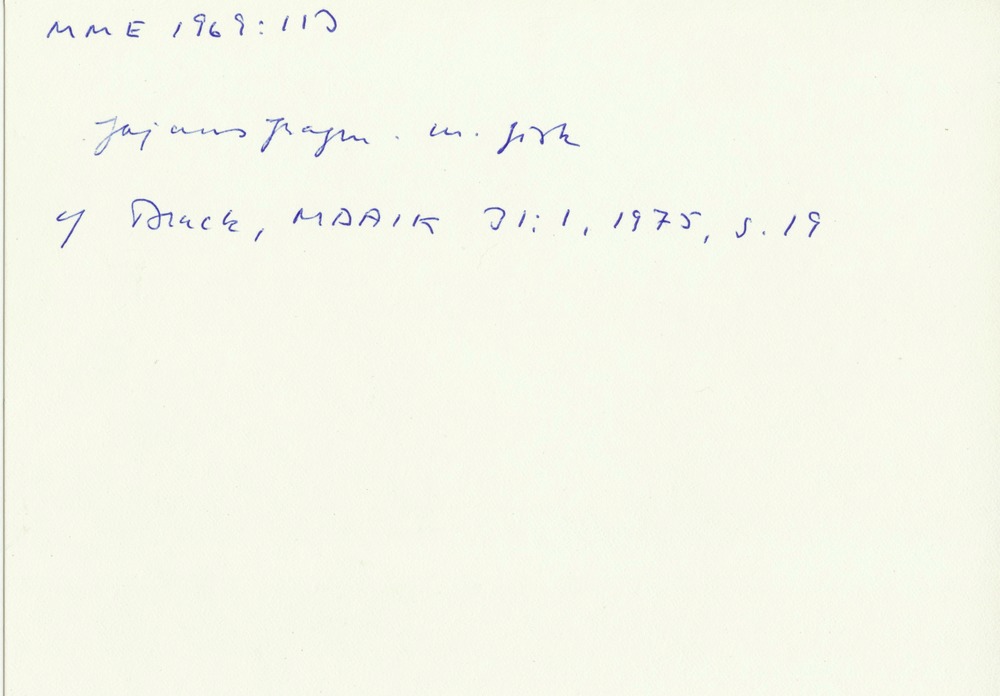 MME 1969:113
fajansfragm. m. fisk
cf Brack, MDAIK 31:1, 1975, s. 19